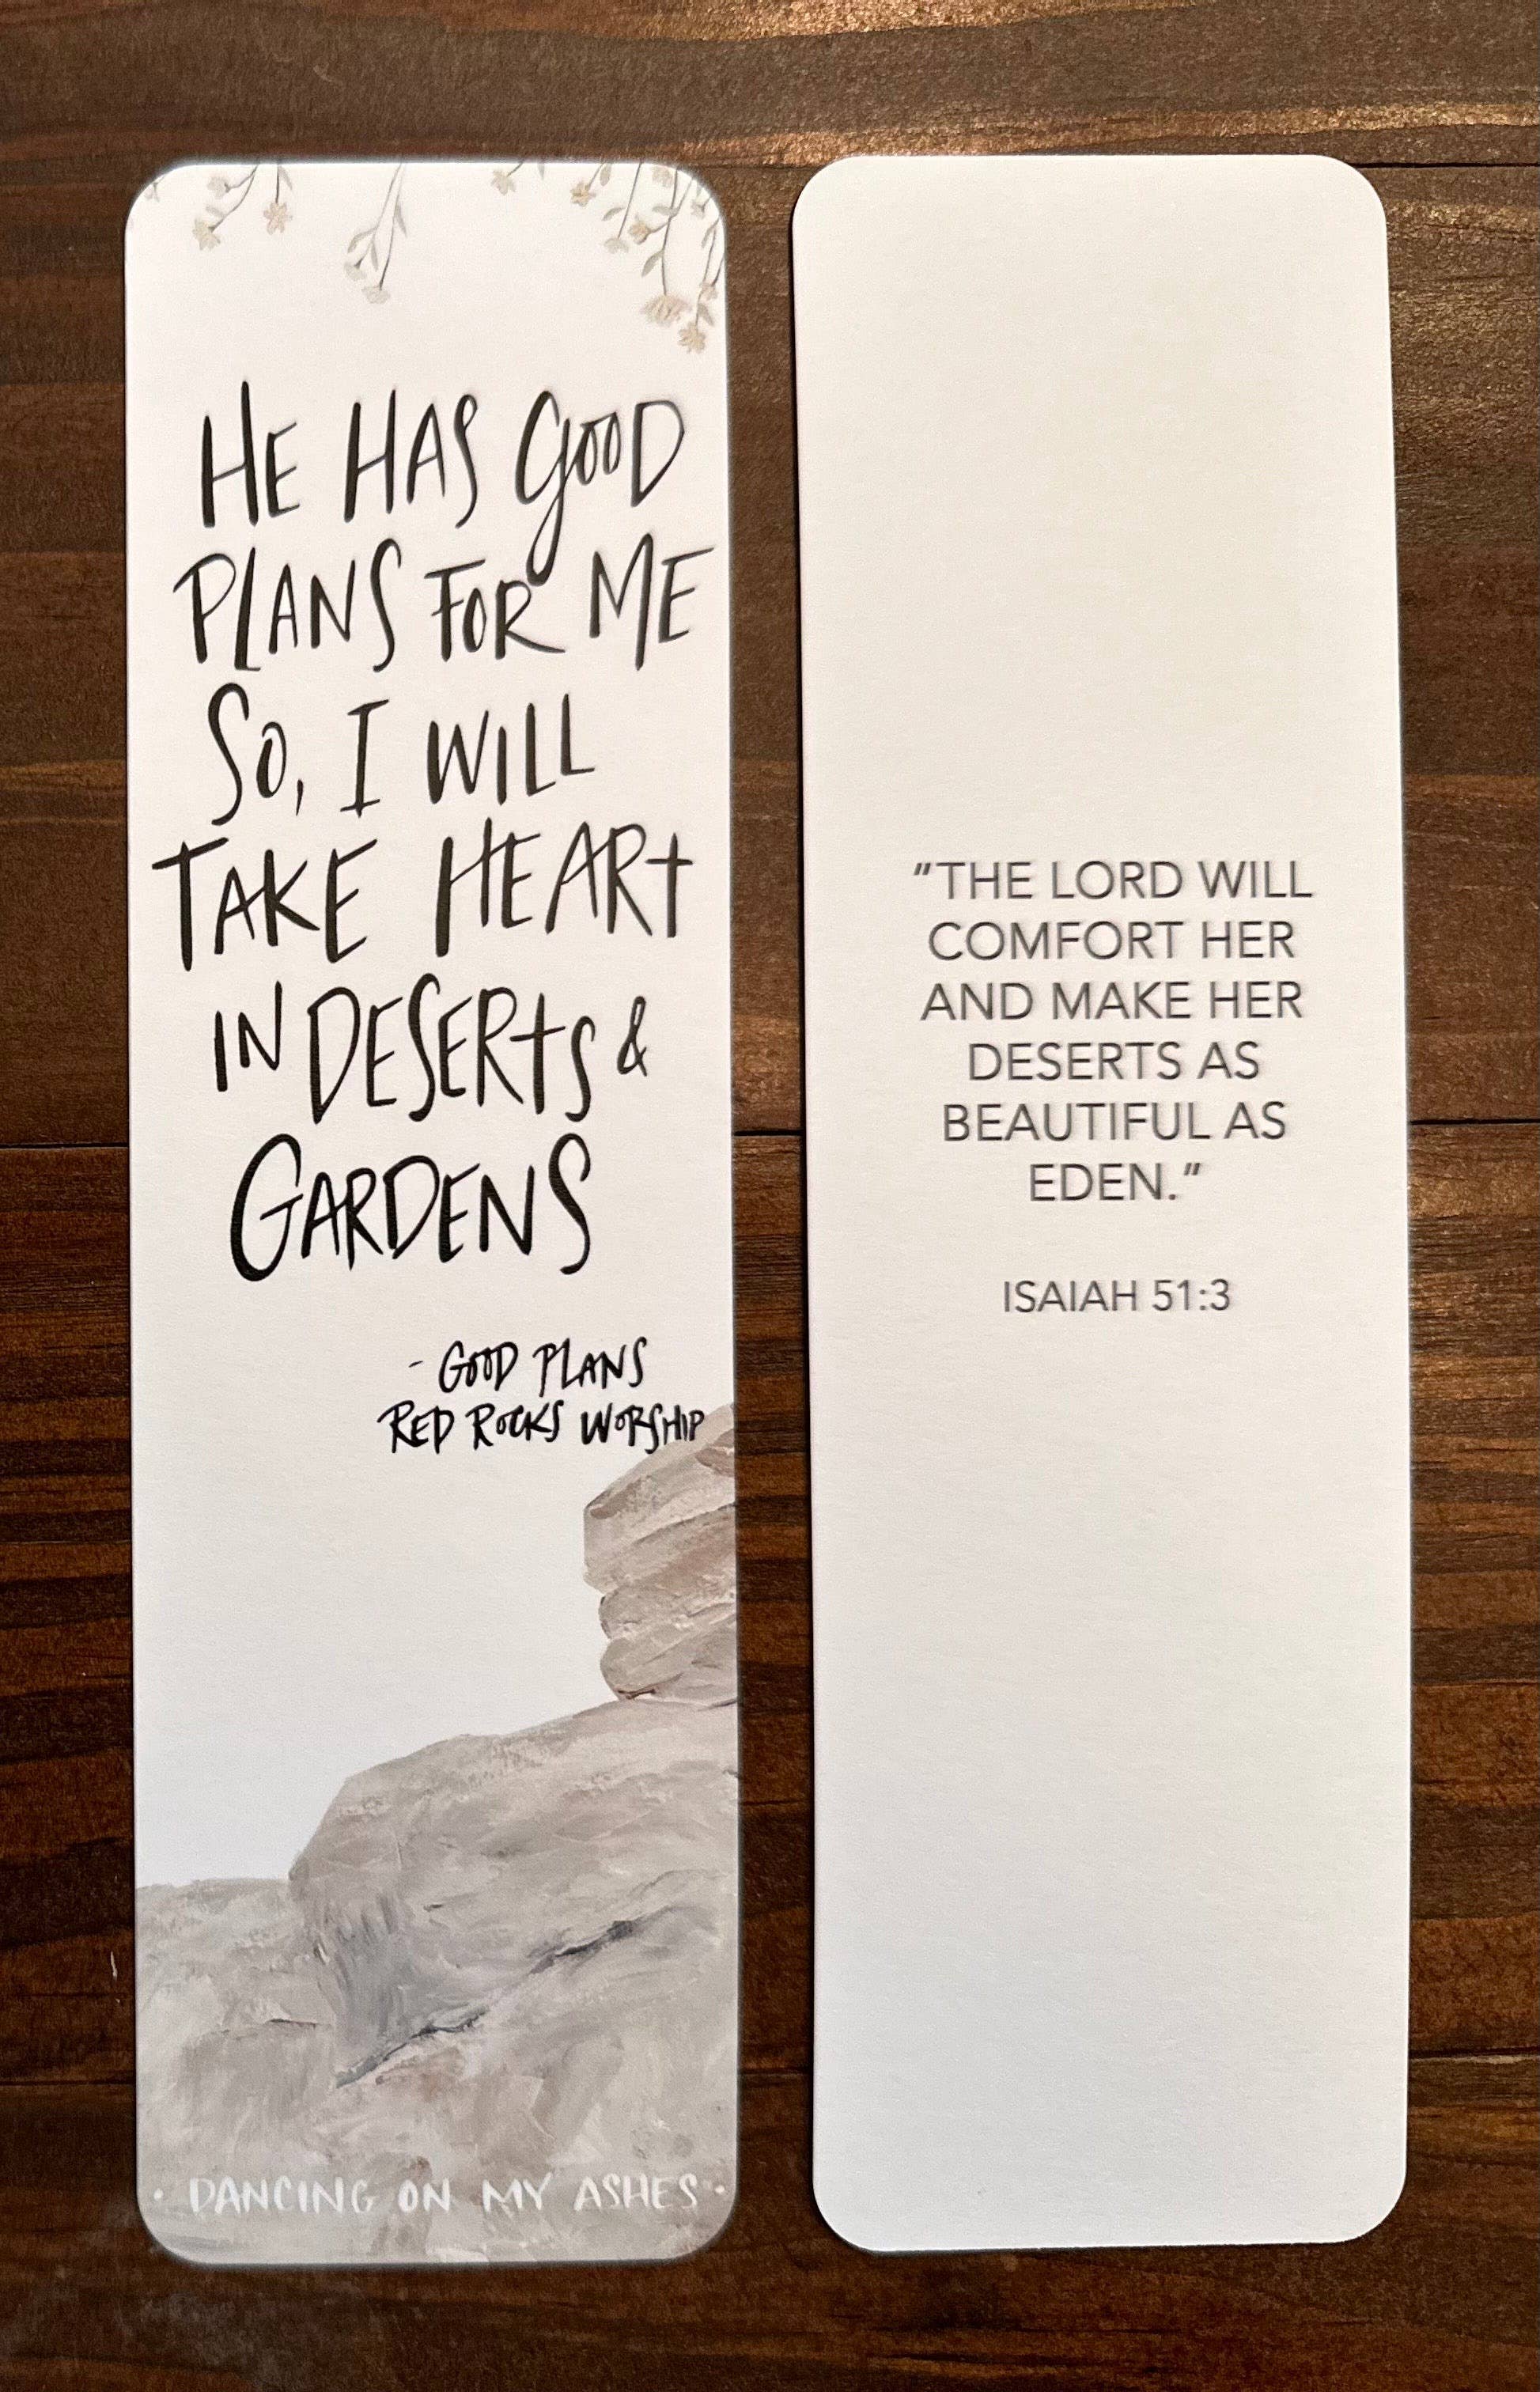 HE HAS GOOD
PLANS FOR ME
SO, I WILL
TAKE HEART
IN DESERTS &
GARDENS
- GOOD PLANS
RED ROCKS WORSHIP
· DANCING ON MY ASHES ·
"THE LORD WILL
COMFORT HER
AND MAKE HER
DESERTS AS
BEAUTIFUL AS
EDEN."
ISAIAH 51:3